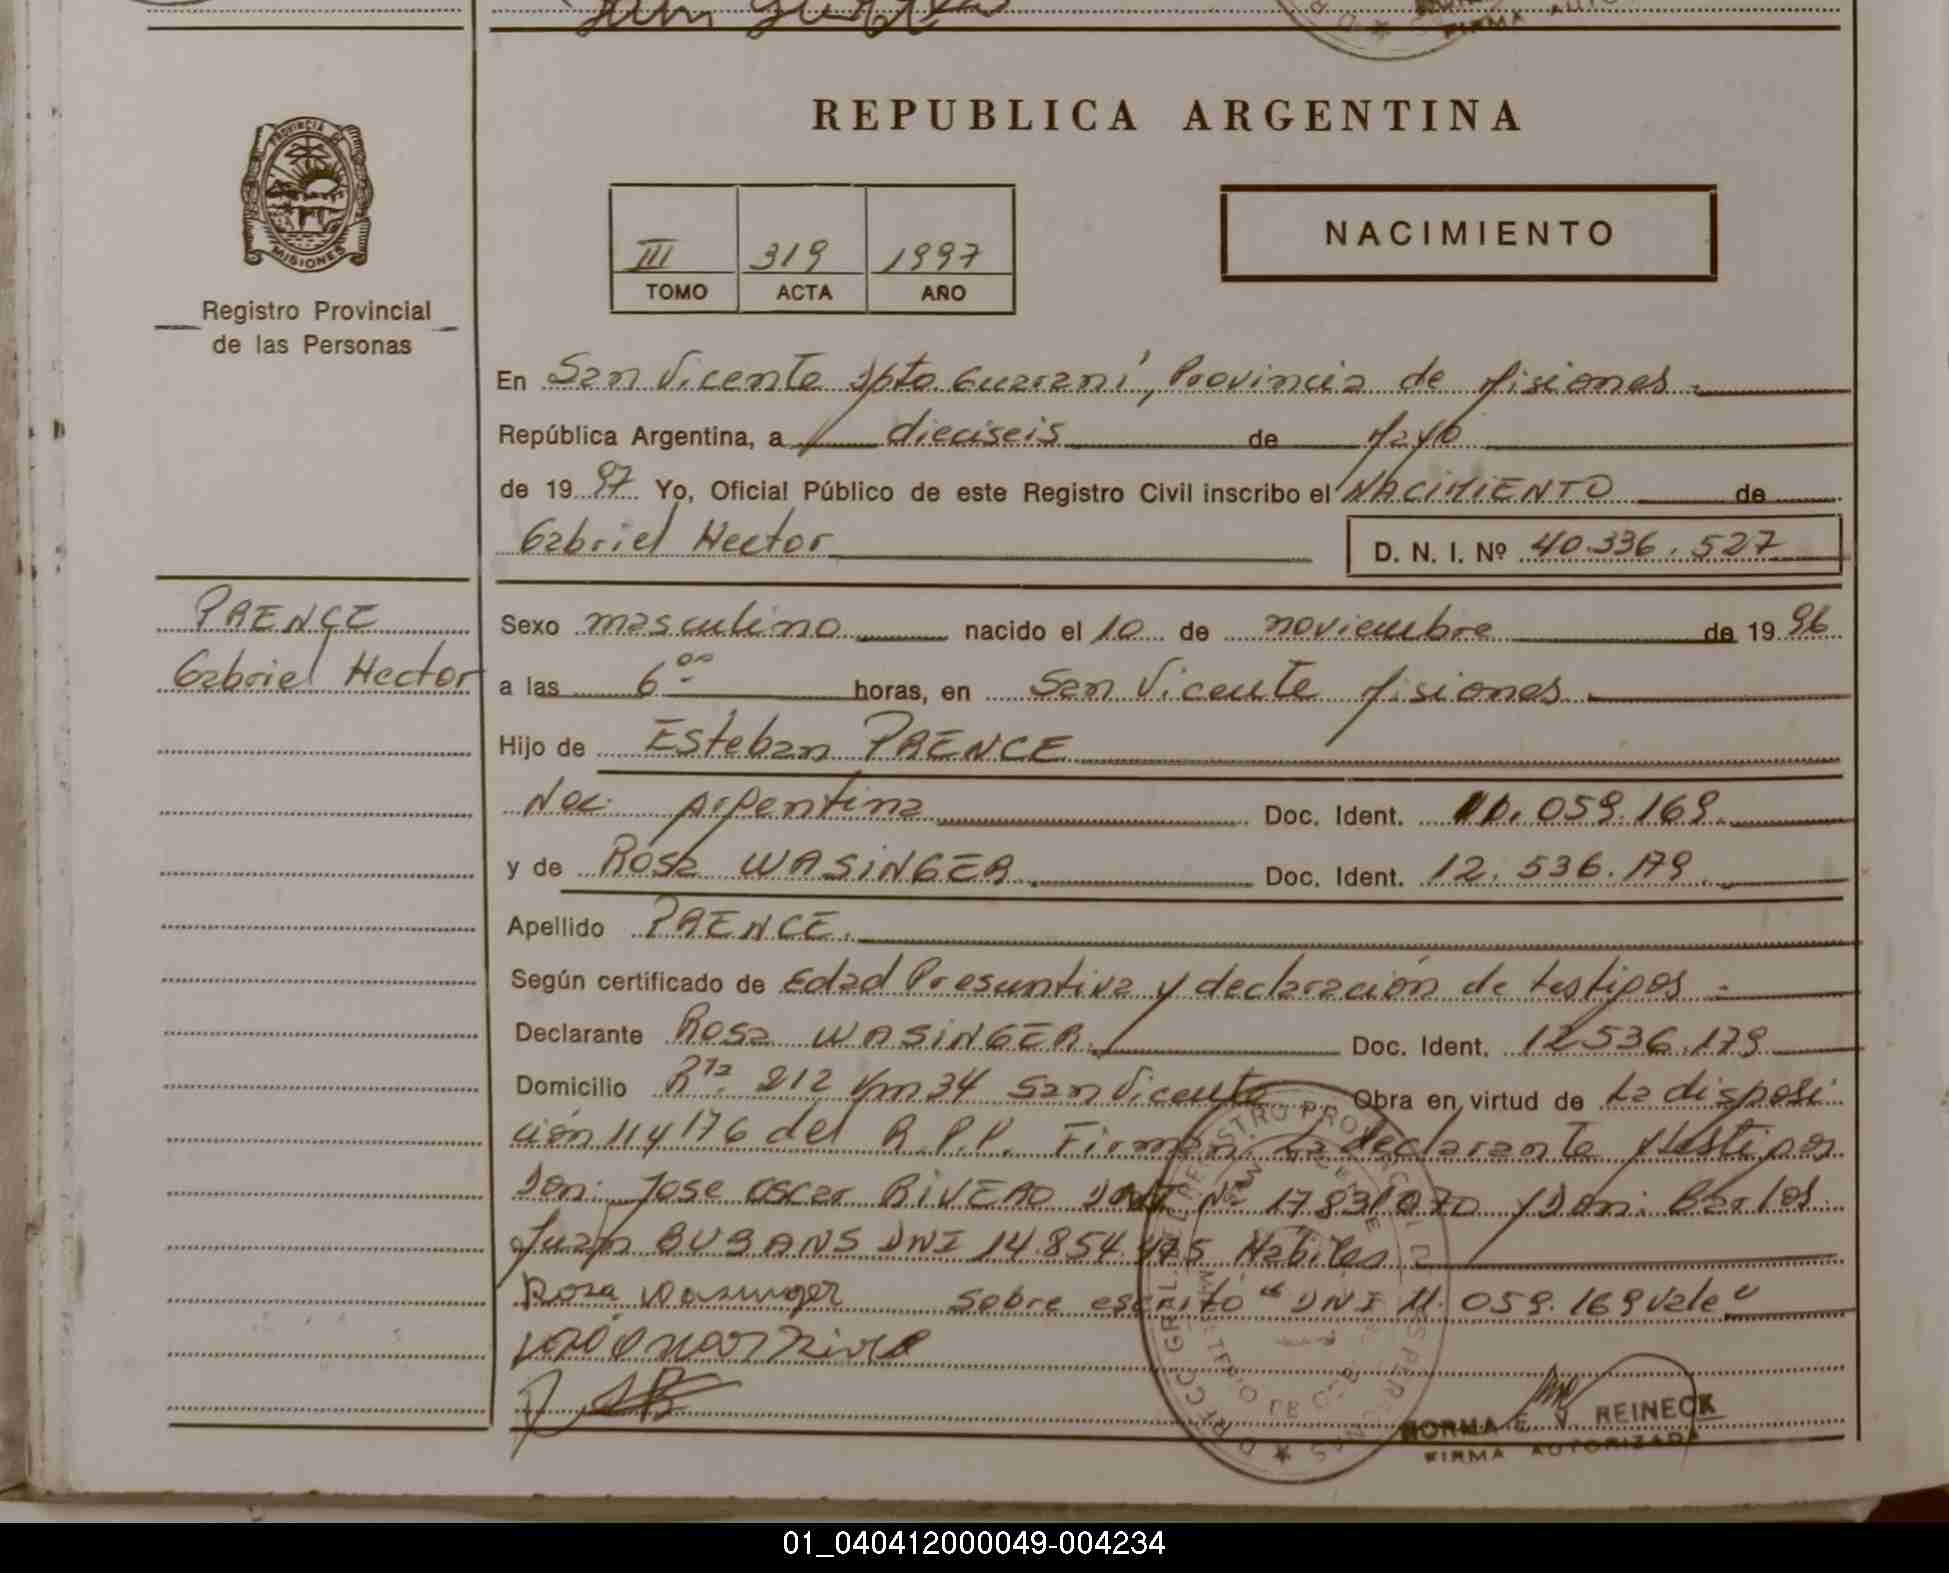 REPUBLICA ARGENTINA
PROVINCIA DE
MISIONES
Registro Provincial
de las Personas
III 319 1997
TOMO ACTA AÑO
NACIMIENTO
En San Vicente Dpto Guaraní, Provincia de Misiones.
República Argentina, a dieciseis de Mayo
de 19 97 Yo, Oficial Público de este Registro Civil inscribo el NACIMIENTO de
Gabriel Hector
D. N. I. Nº 40.336.527
PAENCE
Gabriel Hector
Sexo masculino nacido el 10 de noviembre de 19 96
a las 6 00 horas, en San Vicente Misiones.
Hijo de Esteban PAENCE
Nac. Argentina Doc. Ident. 11.059.169.
y de Rosa WASINGER Doc. Ident. 12.536.179.
Apellido PAENCE.
Según certificado de Edad Presuntiva y declaración de testigos.
Declarante Rosa WASINGER. Doc. Ident. 12536.179
Domicilio Rta. 212 Km 34 San Vicente Obra en virtud de La disposi
ción 114/76 del R.P.P. Firman: La declarante y testigos
Don: Jose Oscar RIVERO DNI Nº 17831070 y Don: Carlos
Juan BUBANS DNI 14.854.475 Habiles
Rosa Wasinger sobre escrito "DNI 11.059.169 Vale"
NORMA E. V. REINECK
FIRMA AUTORIZADA
01_040412000049-004234